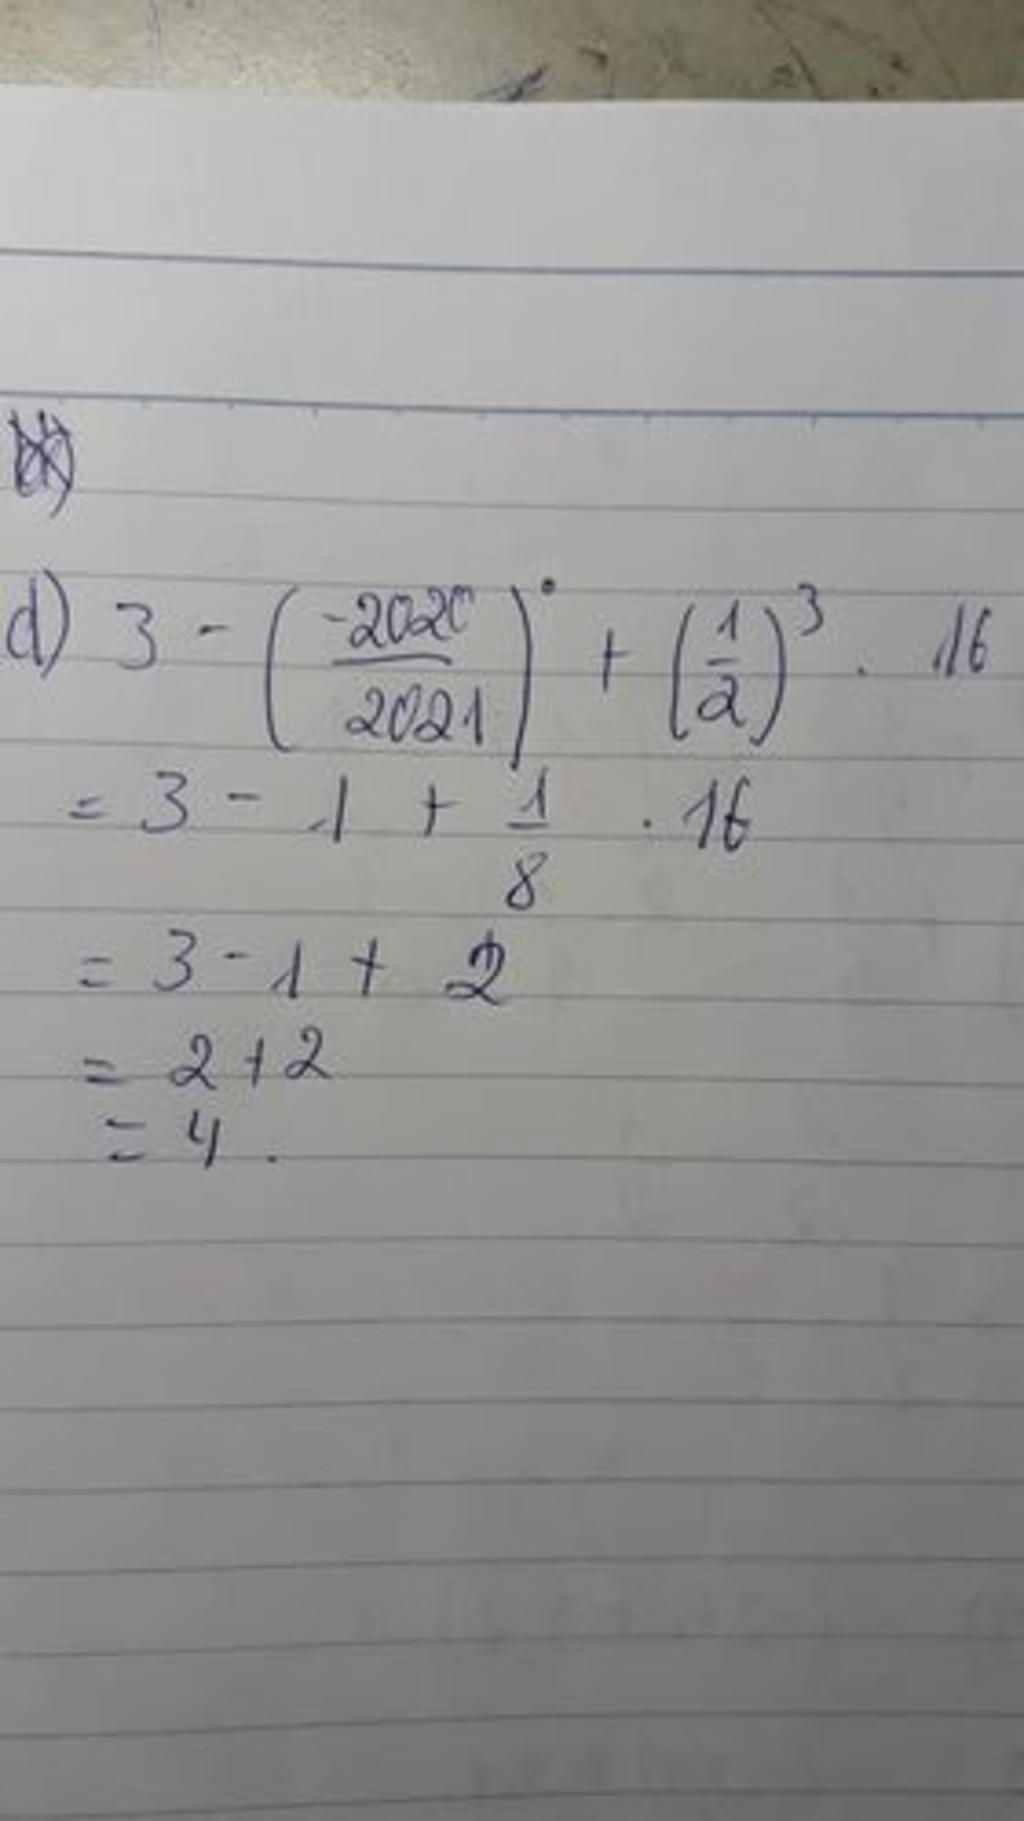 d) 3 - (-2020/2021)⁰ + (1/2)³ . 16
= 3 - 1 + 1/8 . 16
= 3 - 1 + 2
= 2 + 2
= 4 .